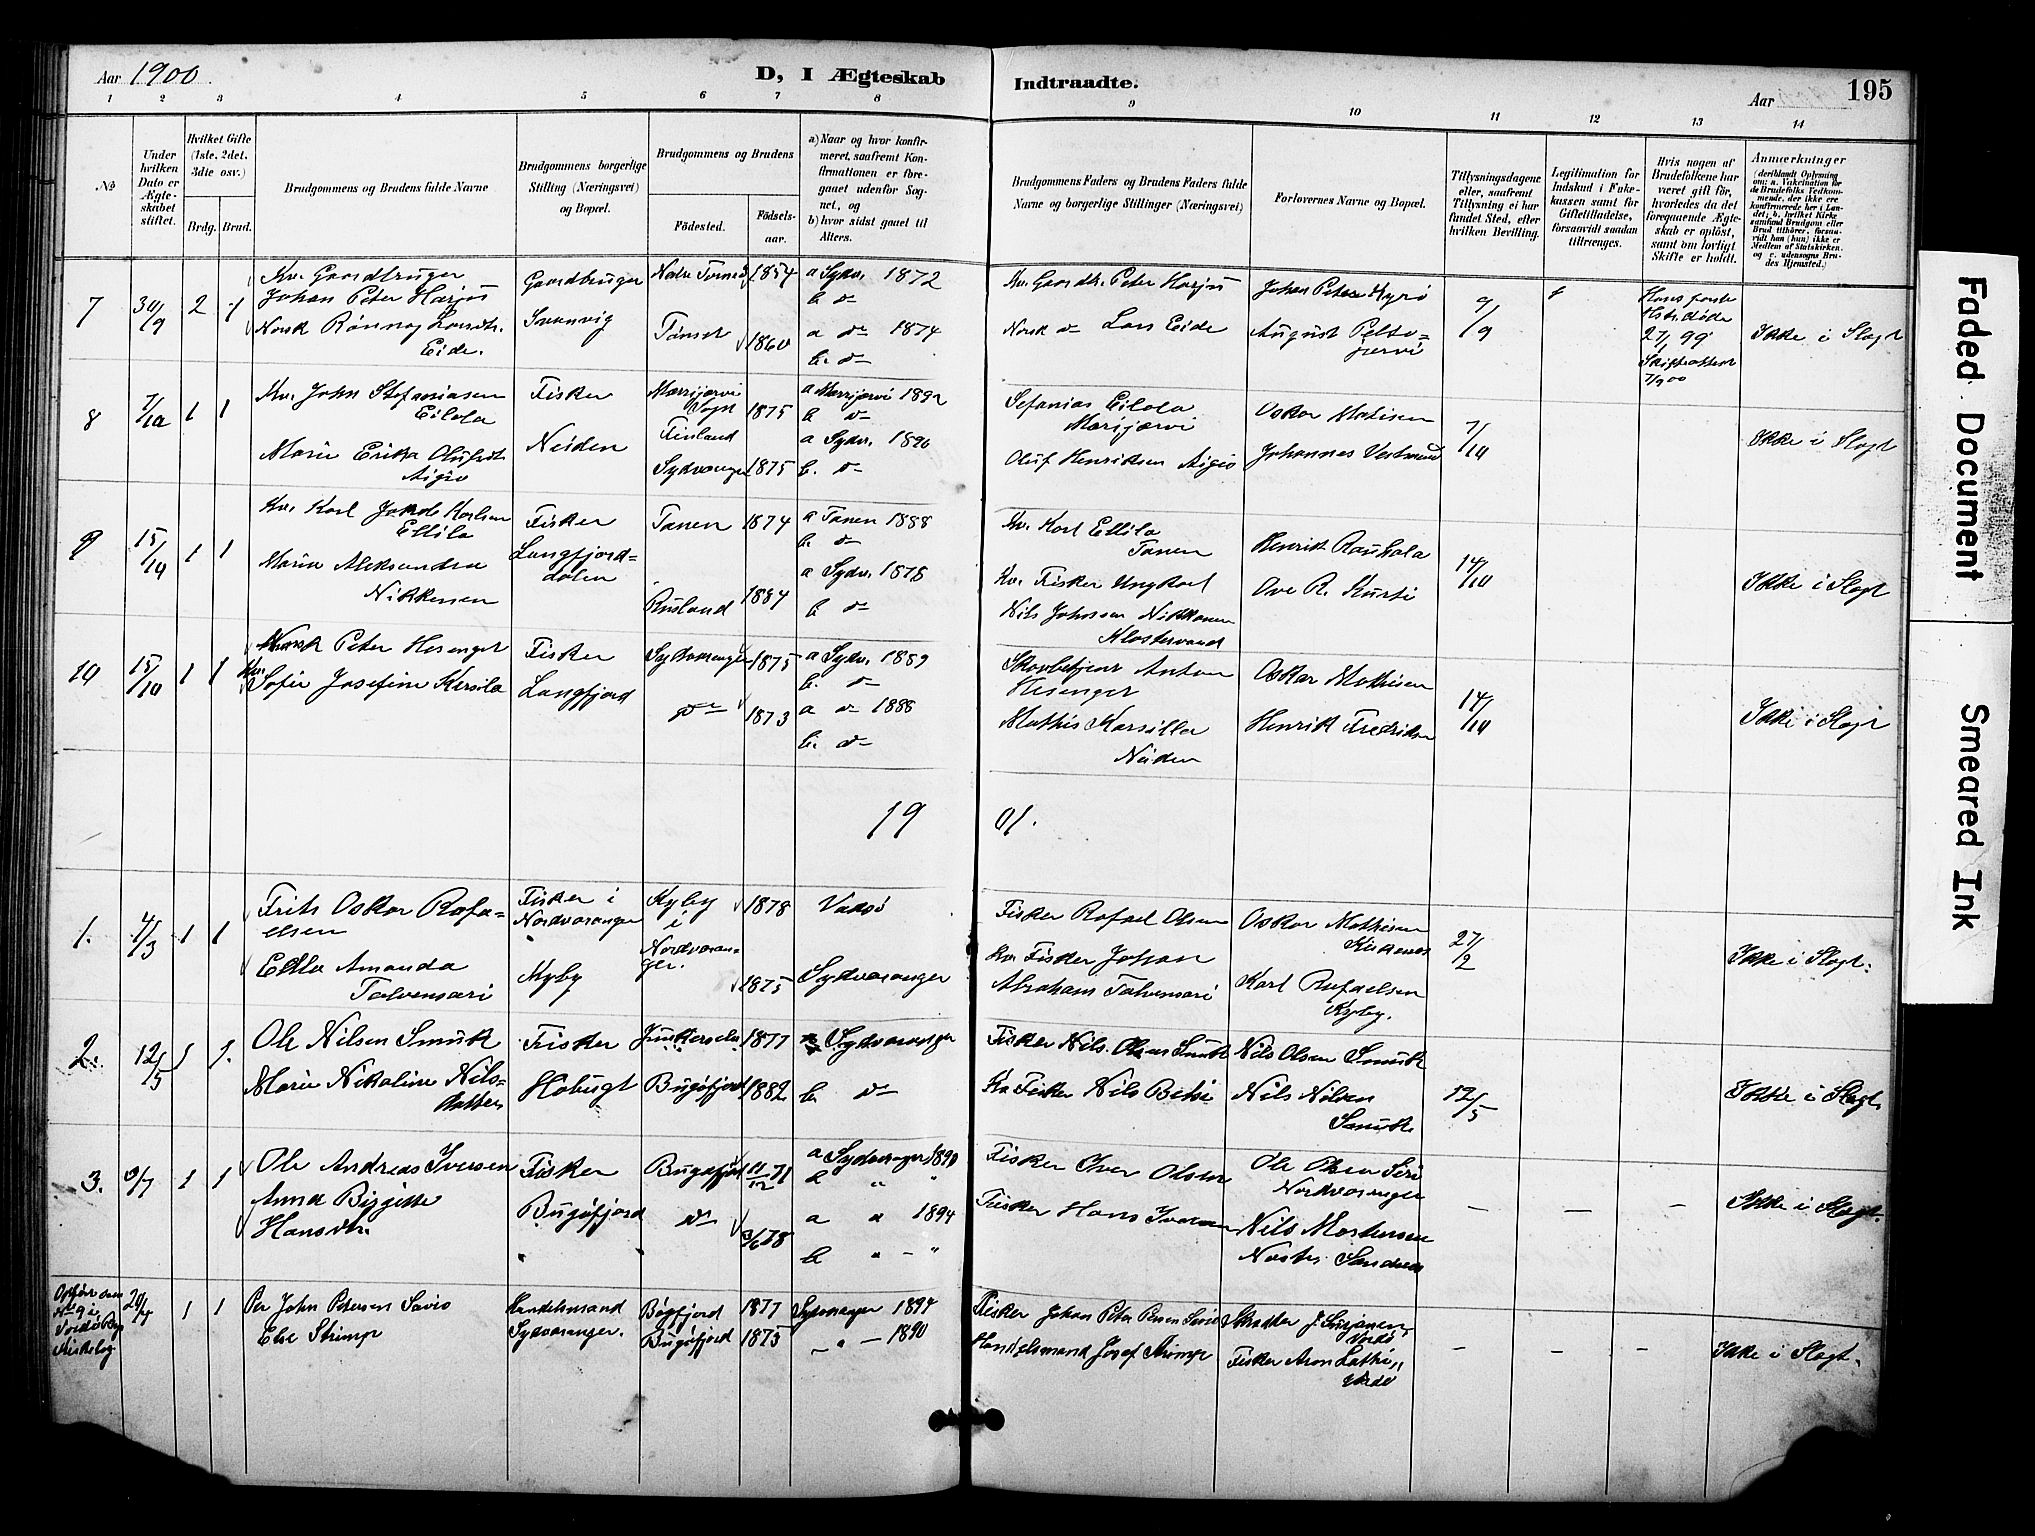 Aar 1900.
D, I Ægteskab
Indtraadte.
Aar
195
1 2 3 4 5 6 7 8 9 10 11 12 13 14
№
Under hvilken Dato er Ægteskabet stiftet.
Hvilket Gifte (1ste, 2det, 3die osv.)
Brdg. Brud.
Brudgommens og Brudens fulde Navne
Brudgommens borgerlige Stilling (Næringsvei) og Bopæl.
Brudgommens og Brudens
Födested.
Födselsaar.
a) Naar og hvor konfirmeret, saafremt Konfirmationen er foregaaet udenfor Sognet, og
b) hvor sidst gaaet til Alters.
Brudgommens Faders og Brudens Faders fulde Navne og borgerlige Stillinger (Næringsvei)
Forlovernes Navne og Bopæl.
Tillysningsdagene eller, saafremt Tillysning ei har fundet Sted, efter hvilken Bevilling.
Legitimation for Indskud i Enkekassen samt for Giftetilladelse, forsaavidt saadan tiltrænges.
Hvis nogen af Brudefolkene har været gift för, hvorledes da det foregaaende Ægteskab er oplöst, samt om lovligt Skifte er holdt.
Anmærkninger
(deriblandt Oplysning om: a. Vakcination for de Brudefolks Vedkommende, der ikke ere konfirmerede her i Landet; b. hvilket Kirkesamfund Brudgom eller Brud tilhörer, forsaavidt han (hun) ikke er Medlem af Statskirken, og c. udensogns Brudes Hjemsted.)
7 30/9 2 1
Kv. Gaardbruger
Johan Peter Harjü
Norsk Rönnog Larsdtr.
Eide.
Gaardbruger
Svanvig
1854
Tönset 1860
a Sydv. 1872
b. do
a do 1874
b. do
Kv. Gaardb. Peter Harjü
Norsk do Lars Eide
Johan Peter Kyrö
August Peltojærvi
9/9
Hans første
Hstr. døde
27/1 99
Skifteattest
7/9 00
Ikke i Slægt
8 7/10 1 1
Kv. John Stefaniasen
Eilola
Marie Erika Olufsdt.
Aigio
Fisker
Neiden
Sogn
Finland 1875
Sydvaranger 1875
a 1892
b. do
a Sydv. 1890
b. do
Sefanias Eilola
Oluf Henriksen Aigio
Oskar Matisen
Johannes Vestmund
7/10
Ikke i Slægt
9 15/10 1 1
Kv. Karl Jakob Karlsen
Ellila
Maria Aleksandra
Nikkenen
Fisker
Langfjorddalen
Tanen 1874
Rusland 1884
a Tanen 1888
b. do
a Sydv. 1878
b. do
Kv. Karl Ellila
Tanen
Kv. Fisker Ungkarl
Nils Johnsen Nikkonen
Klostervand
Henrik Rauhala
Ove R. Kursi
14/10
Ikke i Slægt
10 15/10 1 1
Norsk Peter Hesenget
Kv. Sofie Josefine Karsila
Fisker
Langfjord
Sydvaranger 1875
do 1873
a Sydv. 1889
b. do
a do 1888
b. do
Skovbetjent Anton
Hesenget
Mathis Karsilla
Neiden
Oskar Mathisen
Henrik Fredriksen
14/10
Ikke i Slægt
19 01.
1. 4/3 1 1
Frits Oskar Rafaelsen
Edla Amanda
Talvensari
Fisker i
Nordvaranger
Kyby
Kyby
i
Nordvaranger. 1878
1875
Vadsö
Sydvaranger
Fisker Rafael Olsen
Kv. Fisker Johan
Abraham Talvensari
Oskar Mathisen
Kirkenes
Karl Rafaelsen
Kyby.
27/2
Ikke i Slægt.
2. 12/5 1 1.
Ole Nilsen Smuk
Marie Nikoline Nilsdatter
Fisker
Hobugt
1877
Bugöfjord 1882
a Sydvaranger
b. do
Fisker Nils Olsen Smuk
Kv. Fisker Nils Beksi
Nils Olsen Smuk
Nils Nilsen
Smuk
12/5
Ikke i Slægt.
3. /7 1 1
Ole Andreas Iversen
Anna Birgitte
Hansdtr.
Fisker
Bugöfjord
Bugöfjord 11/12 71
do /6 78
a Sydvaranger 1890
b " "
a " 1894
b " - "
Fisker Iver Olsen
Fisker Hans Iversen
Ole Olsen Siri
Nordvaranger
Nils Mortensen
Næsby. Sandnes
— — —
Ikke i Slægt.
No 9 i
Vardö By
1 1
Per John Petersen Savio
Else Strimp
Handelsmand
Sydvaranger.
Bögfjord 1877
Bugöfjord 1875
Sydvaranger 1894
— " — 1890
Fisker Johan Peter Persen Savio
Handelsmand Josef Strimp
Vardö
Fisker Aron Lathi,
Vardö
— — —
Ikke i Slægt.
Faded Document
Smeared Ink